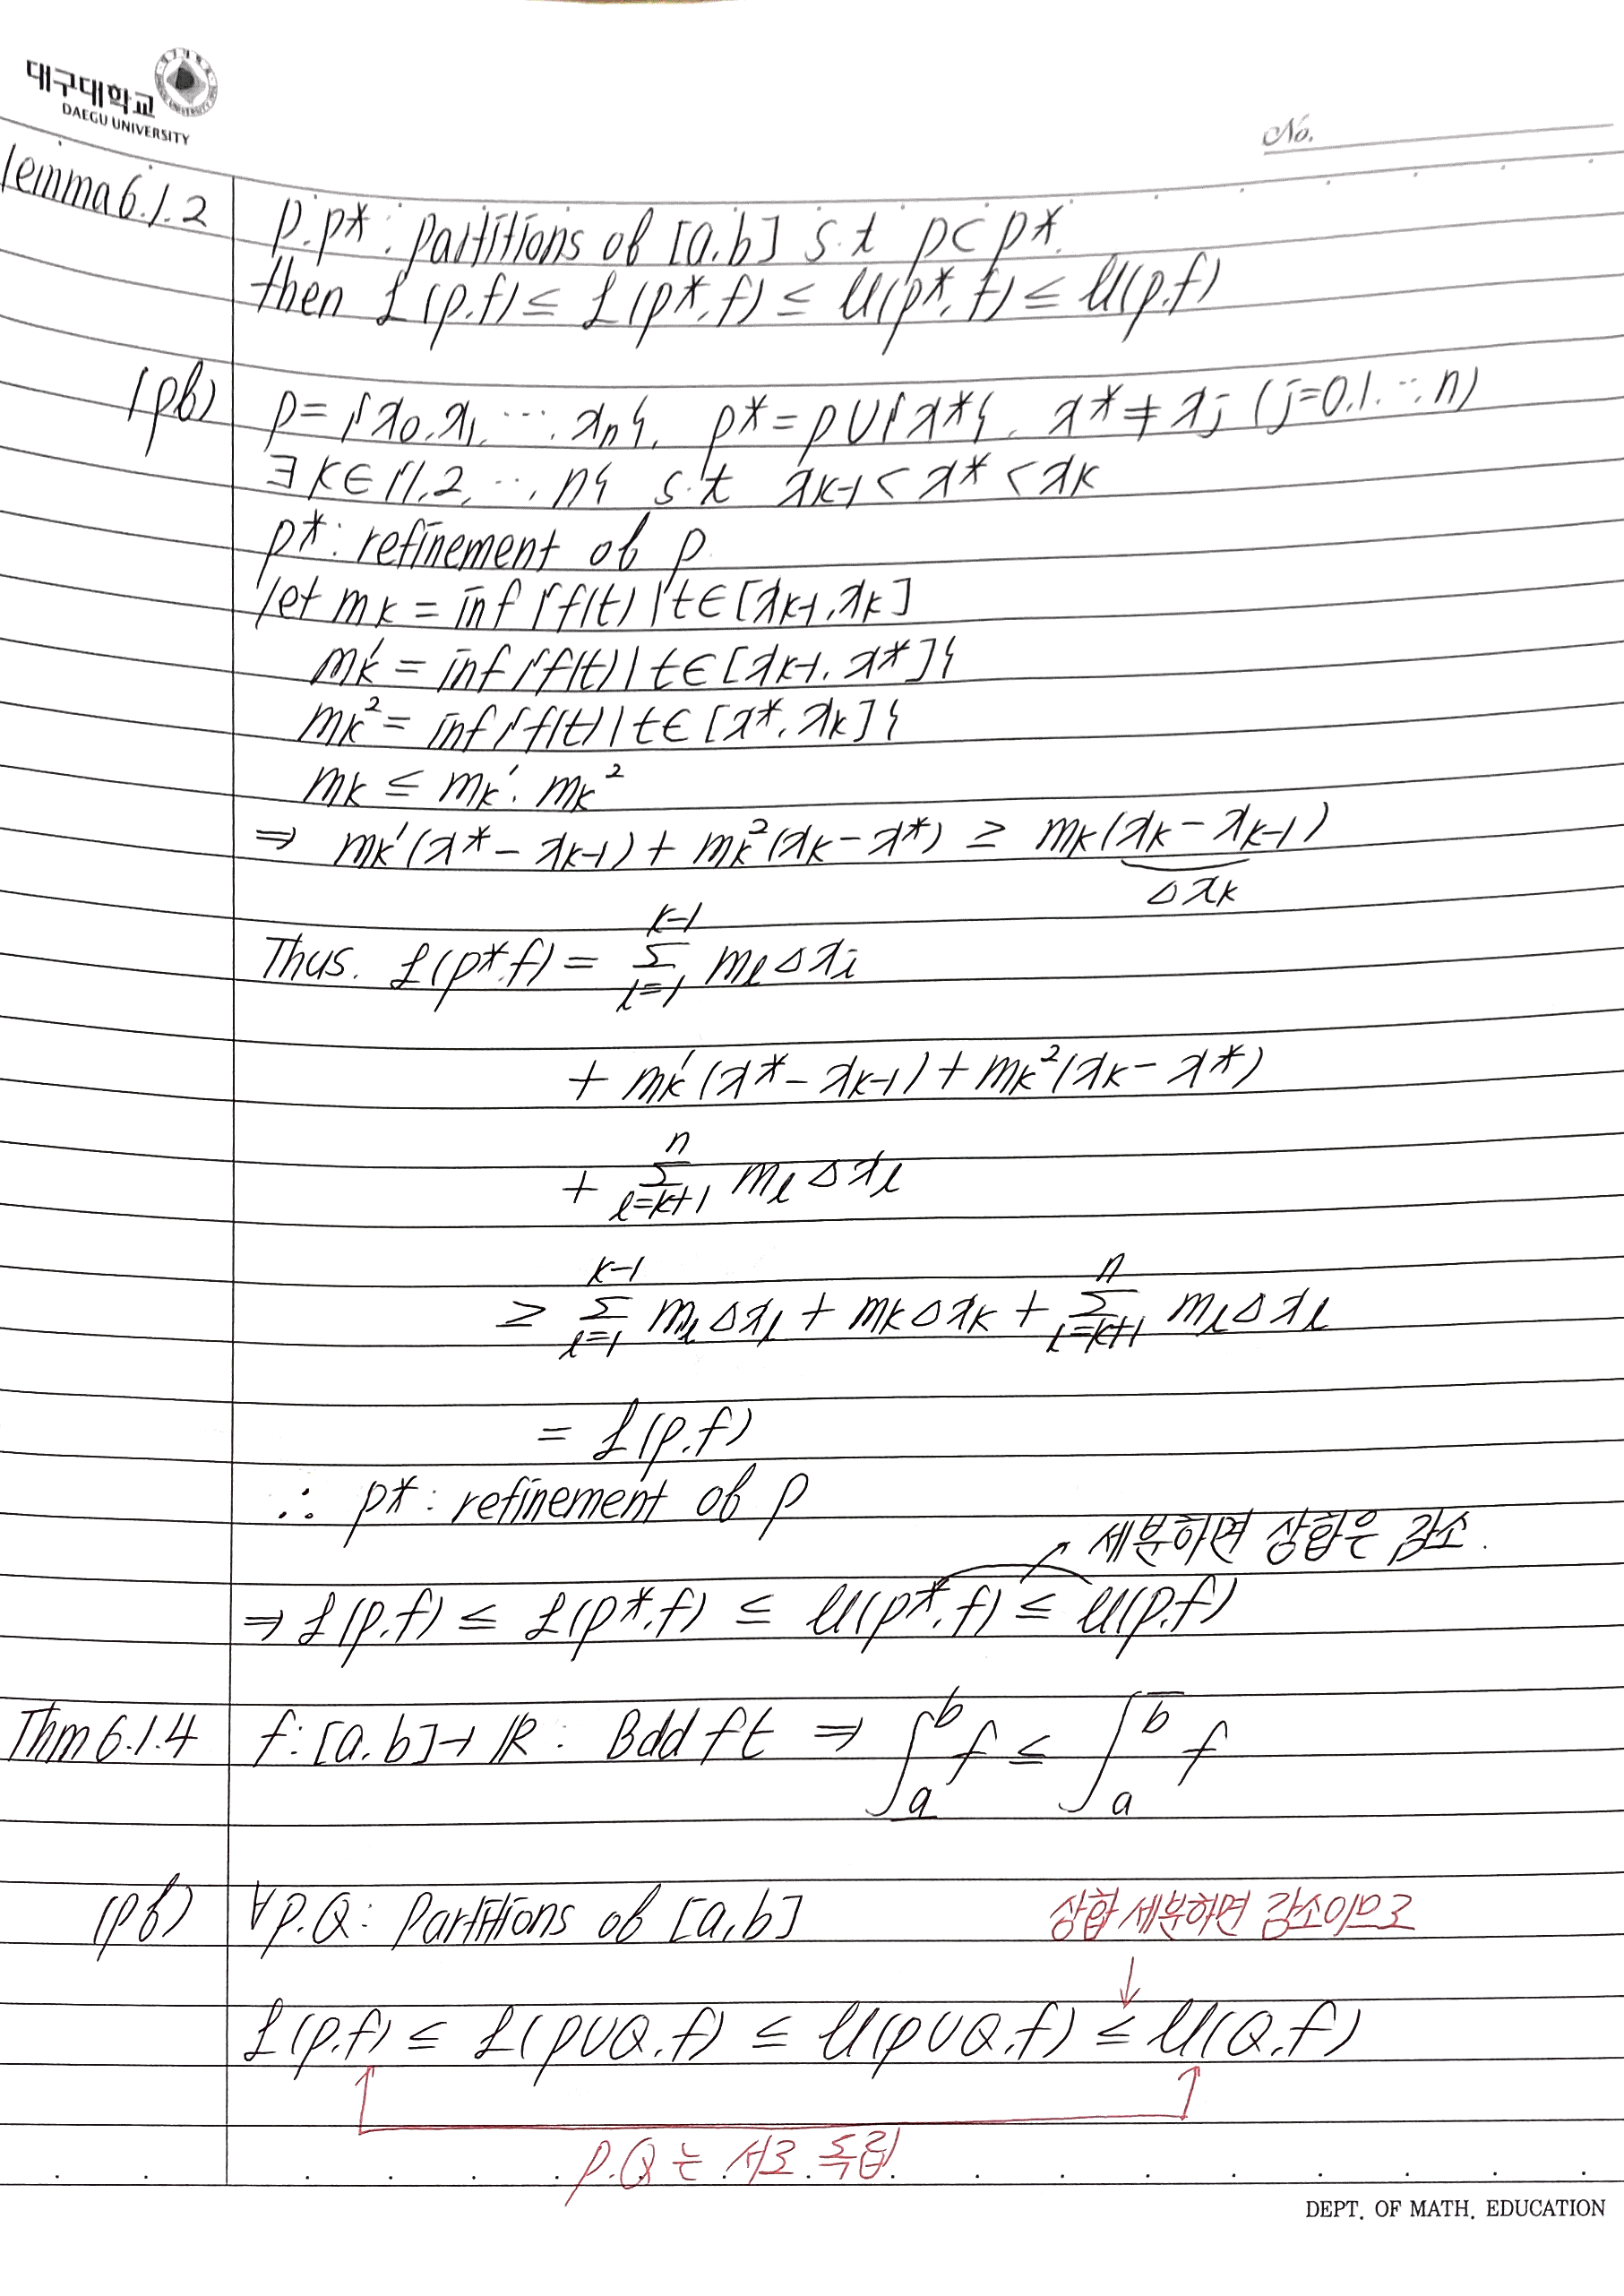 대구대학교
DAEGU UNIVERSITY
No.
Lemma 6.1.2 P, P* : Partitions of [a,b] s.t P⊂P*.
then L(P,f) ≤ L(P*,f) ≤ U(P*,f) ≤ U(P,f)
(pf) P={x₀,x₁,…,xₙ}, P*=P∪{x*}, x*≠xⱼ (j=0,1,…,n)
∃k∈{1,2,…,n} s.t xₖ₋₁<x*<xₖ
P* : refinement of P
let mₖ = inf{f(t)|t∈[xₖ₋₁,xₖ]
mₖ¹ = inf{f(t)|t∈[xₖ₋₁,x*]}
mₖ² = inf{f(t)|t∈[x*,xₖ]}
mₖ ≤ mₖ¹, mₖ²
⇒ mₖ¹(x*-xₖ₋₁)+mₖ²(xₖ-x*) ≥ mₖ(xₖ-xₖ₋₁)
△xₖ
Thus, L(P*,f) = Σ_{l=1}^{k-1} m_l△x_i
+ mₖ¹(x*-xₖ₋₁)+mₖ²(xₖ-x*)
+ Σ_{l=k+1}^{n} m_l△x_l
≥ Σ_{l=1}^{k-1} m_l△x_l + mₖ△xₖ + Σ_{l=k+1}^{n} m_l△x_l
= L(P,f)
∴ P* : refinement of P
세분하면 상합은 감소.
⇒ L(P,f) ≤ L(P*,f) ≤ U(P*,f) ≤ U(P,f)
Thm 6.1.4 f:[a,b]→ℝ : Bdd ft ⇒ ∫̲ₐᵇ f ≤ ∫̅ₐᵇ f
(pf) ∀P,Q : Partitions of [a,b]
상합 세분하면 감소이므로
L(P,f) ≤ L(P∪Q,f) ≤ U(P∪Q,f) ≤ U(Q,f)
P,Q는 서로 독립
DEPT. OF MATH. EDUCATION